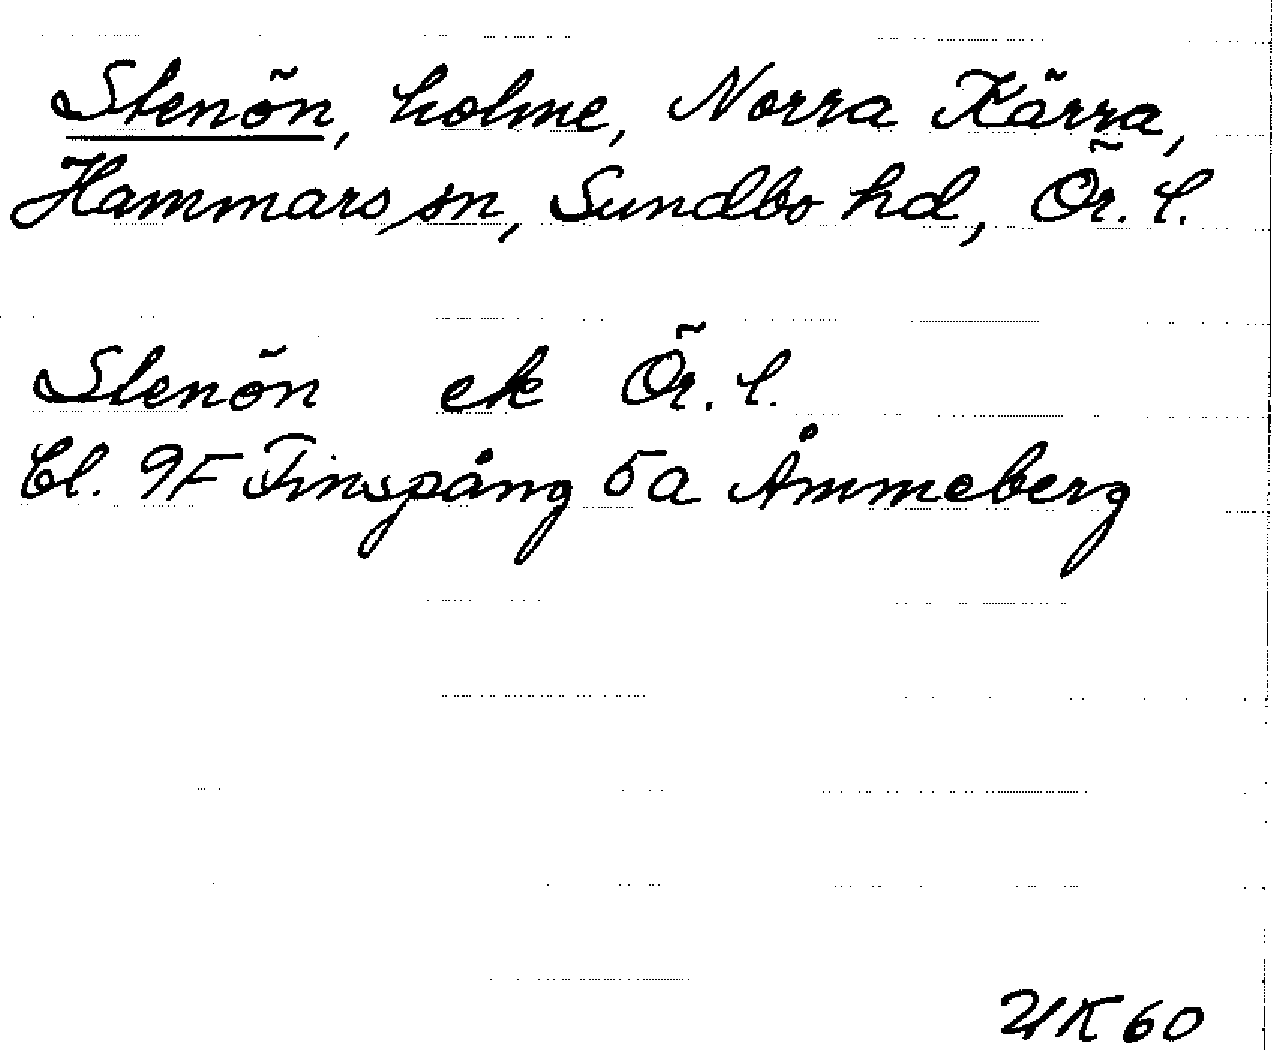 Stenön, holme, Norra Kärra,
Hammars sn, Sundbo hd, Ör. l.
Stenön ek Ör. l.
Bl. 9F Finspång 5a Åmmeberg
UK 60